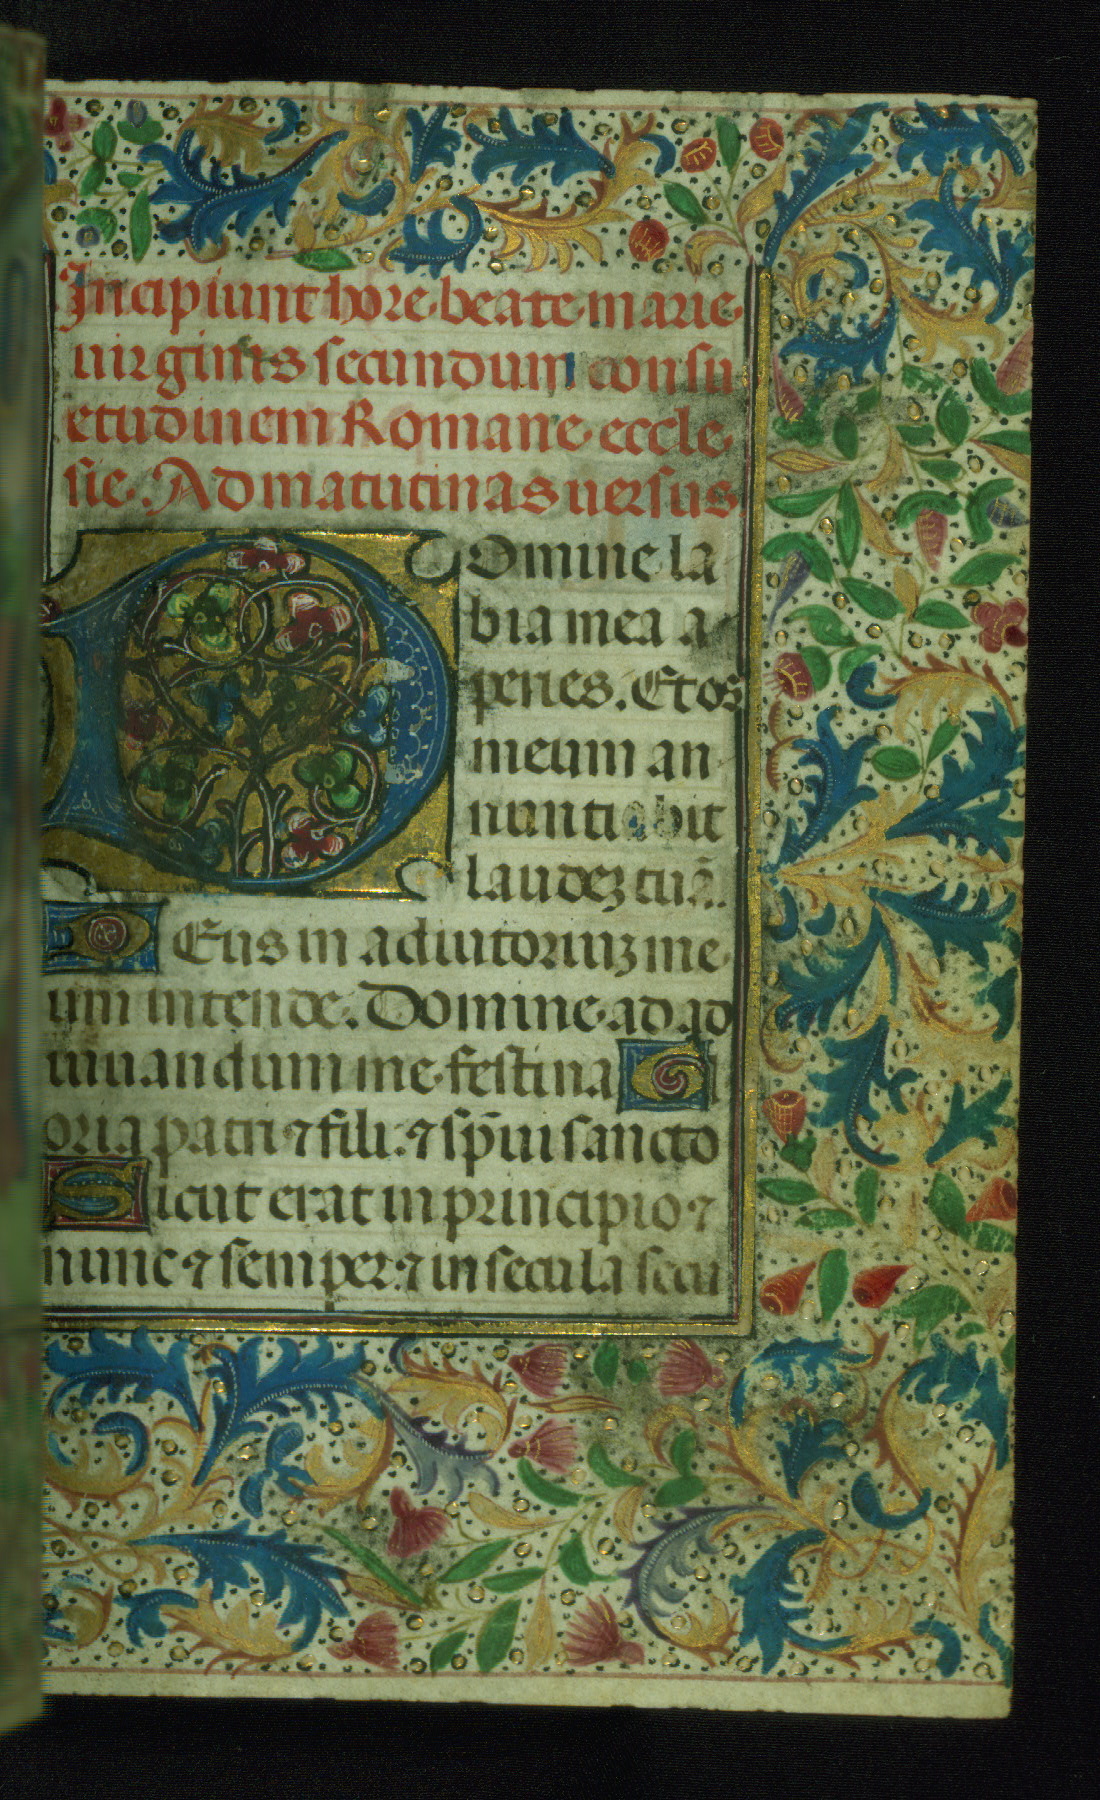 Incipiunt hore beate marie
uirginis secundum consu
etudinem Romane eccle
sie. Ad matutinas uersus
Domine la
bia mea a
peries. Et os
meum an
nuntiabit
laudeʒ tuā.
Deus in adiutoriuʒ me
um intende. Domine ad ad
iuuandum me festina Gl
oria patri ⁊ fili. ⁊ sp̄ui sancto
Sicut erat in principio ⁊
nunc ⁊ semper ⁊ in secula secu